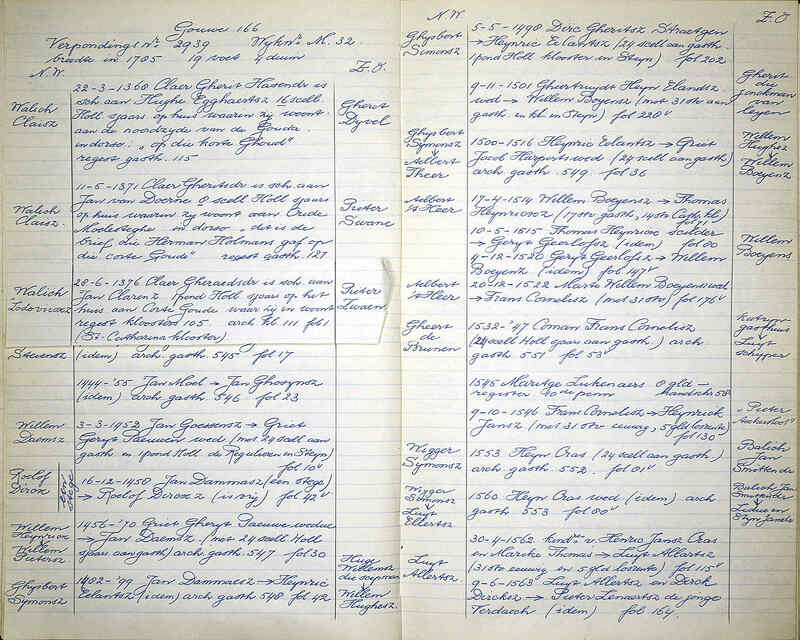 Gouwe 166
Verpondings No. 2939 Wyk No. M. 32.
breedte in 1785 19 voet 4 duim
N.W. Z.O.
22-3-1368 Claer Gherit Hasendr is
sch. aan Hughe Egghaertsz 16 scell.
Holl sjaars op huis waarin zy woont
aan de noordzyde van de Gouda
in dorso: "op die korte Ghoud"
regest gasth. 115
Walich
Claisz
Gherit
Dyvel
11-5-1371 Claer Ghertsdr is sch. aan
Jan van Doerne 8 scell Holl sjaars
op huis waarin zy woont aan Oude
in dorso "dit is de
brief die Herman Holmans gaf op
die corte Goude" regest gasth. 127
Walich
Claisz.
Pieter
Swane
28-6-1376 Claer Gheraedsdr is sch. aan
Jan Clarenz 1 pond Holl sjaars op het
huis aan Corte Goude waar zy in woont
regest kloosters 105. arch kl 111 fol 1
(St. Catharinaklooster)
Walich
Lodowicsz
Pieter
Zwaen
Stevensz
(idem) arch gasth. 545 fol 17
1444-'55 Jan Moel → Jan Ghoesynsz
(idem) arch gasth. 546 fol 23
Willem
Daemsz
3-3-1452 Jan Goessensz → Griet
Geryt Pauwels wed (met 24 scell aan
gasth en 1 pond Holl de Regulieren in Steyn)
fol 10v
Roelof
Dircxz
een
stege
16-12-1458 Jan Dammasz (een stege)
→ Roelof Dircxsz (is vrij) fol 42v
Willem
Heynricxz
Willem
Pietersz
1456-'70 Griet Gheryt Pauwe weduwe
→ Jan Daemsz. (met 24 scell Holl
sjaars aan gasth) arch gasth. 547 fol 30
Huge
Willemsz
die scipman
Ghysbert
Symonsz
1482-'99 Jan Dammaesz → Heynric
Eelantsz (idem) arch gasth 548 fol 42
Willem
Hughesz.
N.W. Z.O
Ghysbert
Simonsz
5-5-1498 Dirc Gheritsz Straetgen
→ Heynric Eelantsz (29 scell aan gasth.
1 pond Holl klooster en Steyn) fol 202
9-11-1501 Gheertruydt Heyn Elandsz
wed → Willem Boyensz (met 31 str aan
gasth. en kl. in Steyn) fol 220v
Gherit
die
Jonckman
van
Leyen
Ghysbert
Symonsz
Aelbert
Theer
1500-1516 Heynric Eelantsz → Griet
Jacob Harpertswed (29 scell aan gasth)
arch gasth. 549 fol 36
Willem
Hughsz
Willem
Boyenz
Aelbert
's Heer
17-4-1514 Willem Boeyensz → Thomas
Heynricxsz (17 str gasth, 14 str Cath. kl)
10-5-1515 Thomas Heynricxz Scilder
→ Geryt Geerlofsz (idem) fol 80
4-12-1520 Geryt Geerlofsz → Willem
Boeyenz (idem) fol 147v
Willem
Boeyens
Aelbert
's Heer
20-12-1522 Marte Willem Boeyenswed
→ Frans Cornelisz (met 31 str) fol 176v
Gheert
de
Brunen
1532-'47 Coman Frans Cornelisz
(24 scell Holl sjaars aan gasth) arch
gasth 551 fol 53v
Katryn-
gasthuis
Luyt
schyper
1545 Maritge Lukenaers 0 gld —
register 10de penn handschr 58
9-10-1546 Frans Cornelisz → Heynrick
Jansz (met 31 str eeuwig, 5 gld losrente)
fol 130
Pieter
Wigger
Symonsz
1553 Heyn Cras (24 scell aan gasth.)
arch gasth. 552. fol 01v
Balich
Jan
Smittende
Wigger
Simonsz
Luyt
Ellertsz
1560 Heyn Cras wed (idem) arch
gasth 553 fol 80v
Balich Jan
Lidwe en
Styn Jansdr
Luyt
Allertsz
30-4-1562 kindn. v. Henric Jansz Cras
en Marike Thomas → Luyt Allertsz
(31 str eeuwig en 5 gld losrente) fol 115v
9-6-1563 Luyt Allertsz en Dirck
Dircksz → Pieter Lenaertsz de jonge
Terdaech (idem) fol 164.